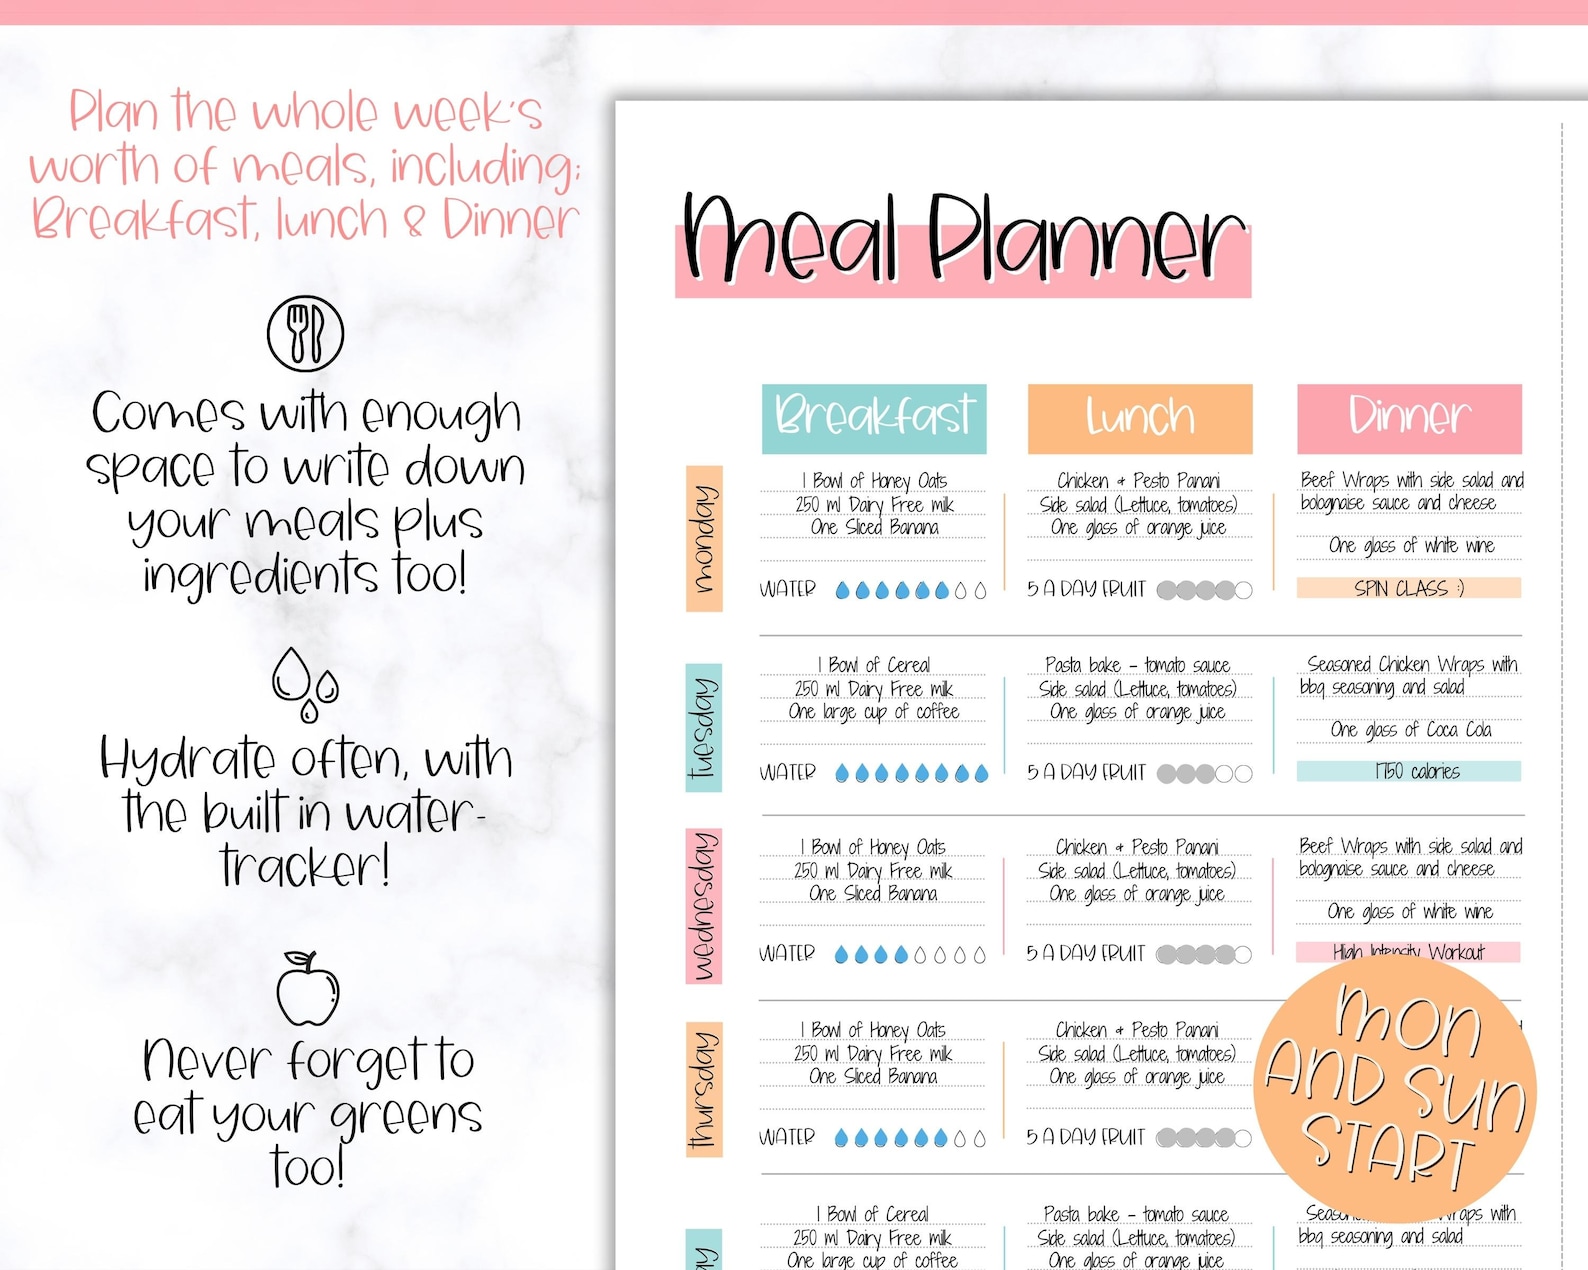 Plan the whole week's
worth of meals, including;
Breakfast, lunch & Dinner
Comes with enough
space to write down
your meals plus
ingredients too!
Hydrate often, with
the built in water-
tracker!
Never forget to
eat your greens
too!
Meal Planner
Breakfast
Lunch
Dinner
monday
1 Bowl of Honey Oats
250 ml Dairy Free milk
One Sliced Banana
WATER
Chicken + Pesto Panani
Side salad (Lettuce, tomatoes)
One glass of orange juice
5 A DAY FRUIT
Beef Wraps with side salad and
bolognaise sauce and cheese
One glass of white wine
SPIN CLASS :)
tuesday
1 Bowl of Cereal
250 ml Dairy Free milk
One large cup of coffee
WATER
Pasta bake - tomato sauce
Side salad (Lettuce, tomatoes)
One glass of orange juice
5 A DAY FRUIT
Seasoned Chicken Wraps with
bbq seasoning and salad
One glass of Coca Cola
1750 calories
wednesday
1 Bowl of Honey Oats
250 ml Dairy Free milk
One Sliced Banana
WATER
Chicken + Pesto Panani
Side salad (Lettuce, tomatoes)
One glass of orange juice
5 A DAY FRUIT
Beef Wraps with side salad and
bolognaise sauce and cheese
One glass of white wine
High Intensity Workout
thursday
1 Bowl of Honey Oats
250 ml Dairy Free milk
One Sliced Banana
WATER
Chicken + Pesto Panani
Side salad (Lettuce, tomatoes)
One glass of orange juice
5 A DAY FRUIT
MON
AND SUN
START
1 Bowl of Cereal
250 ml Dairy Free milk
One large cup of coffee
Pasta bake - tomato sauce
Side salad (Lettuce, tomatoes)
One glass of orange juice
with
bbq seasoning and salad